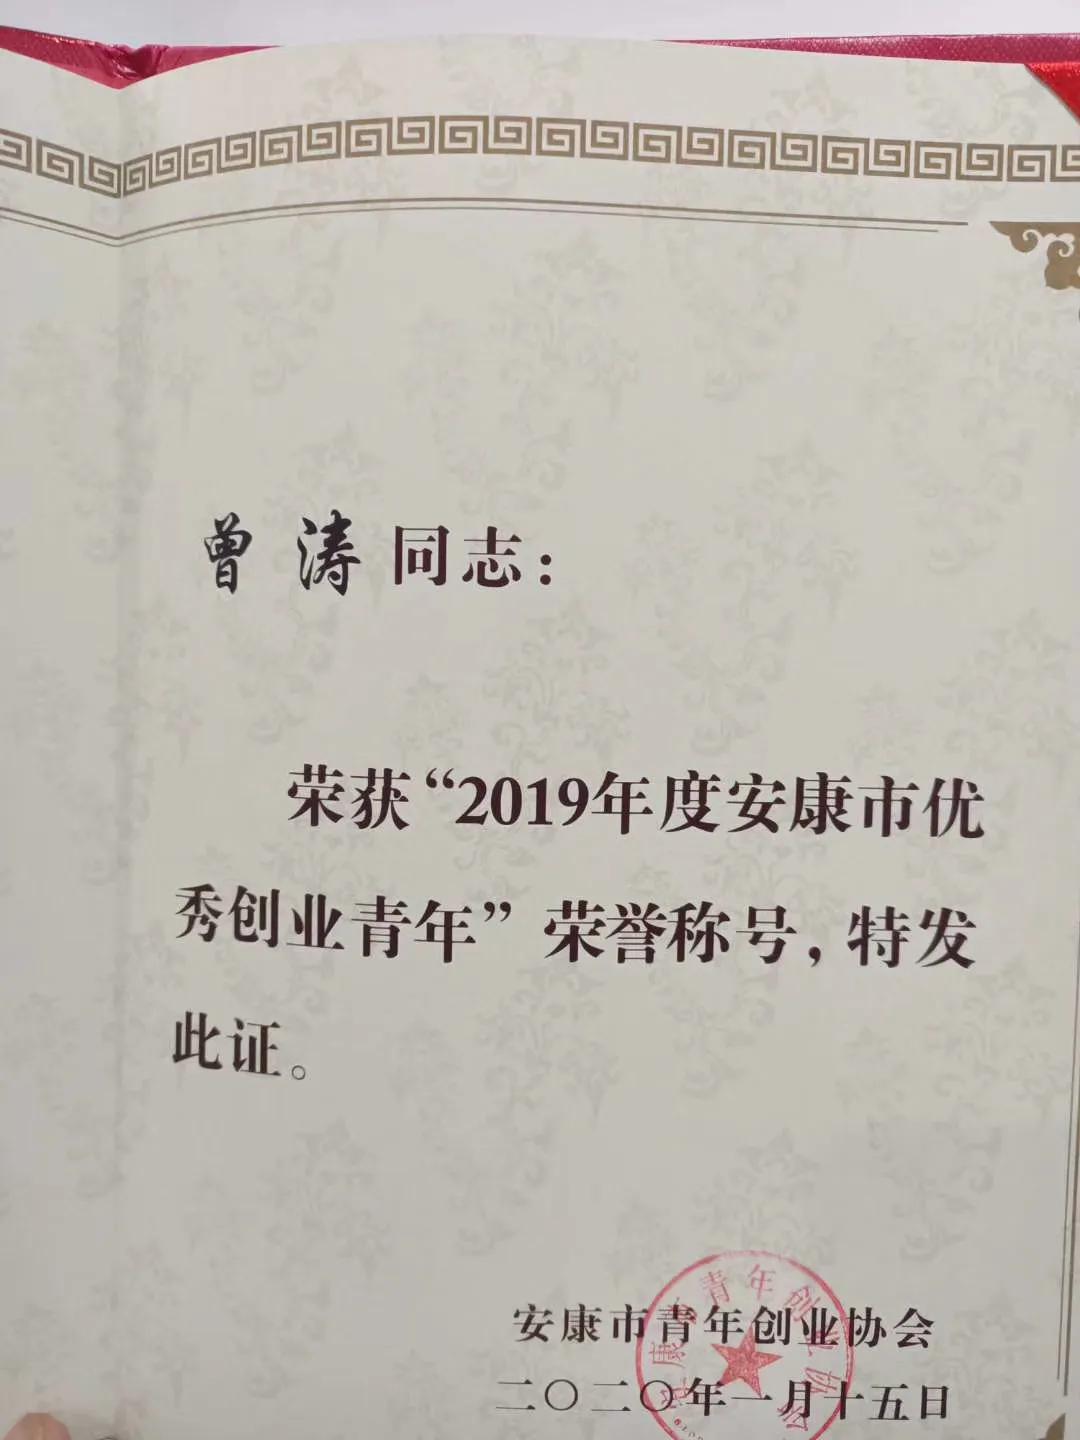 曾涛同志：
荣获“2019年度安康市优
秀创业青年”荣誉称号，特发
此证。
安康市青年创业协会
二〇二〇年一月十五日
安康市青年创业协会